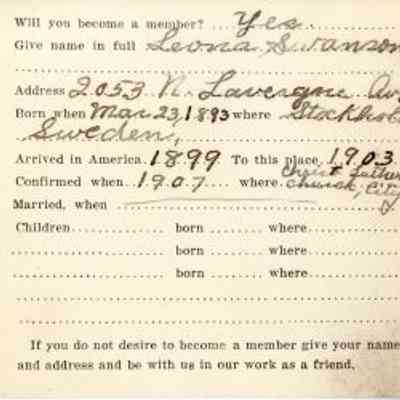 Will you become a member? Yes.
Give name in full Leona Swanson
Address 2053 N. Lavergne Av
Born when Mar 23, 1893 where Stockhol
Sweden,
Arrived in America 1899 To this place 1903
Christ Luther
Confirmed when 1907 where church, City
Married, when
Children born where
born where
born where
If you do not desire to become a member give your name
and address and be with us in our work as a friend.